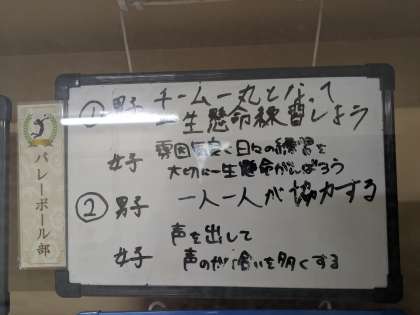 バレーボール部
① 男子 チーム一丸となって
一生懸命練習しよう
女子 雰囲気良く日々の練習を
大切に一生懸命がんばろう
② 男子 一人一人が協力する
女子 声を出して
声のかけ合いを多くする